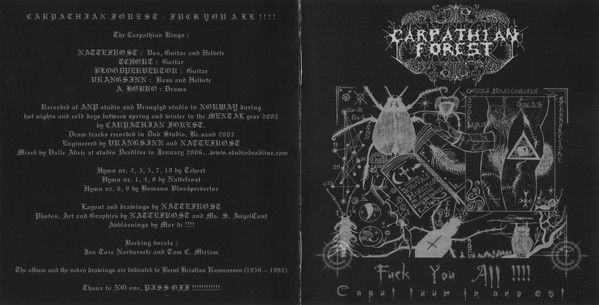 CARPATHIAN FOREST - FUCK YOU ALL !!!!
The Carpathian Kings :
NATTEFROST : Vox, Guitar and Helvete
TCHORT : Guitar
BLOODPERVERTOR : Guitar
VRANGSINN : Bass and Helvete
A. KOBRO : Drums
Recorded at ANP studio and Vranglyd studio in NORWAY during
hot nights and cold days between spring and winter in the MENTAL year 2005
by CARPATHIAN FOREST.
Drum tracks recorded in Dub Studio, Kr.sand 2005
Engineered by VRANGSINN and NATTEFROST
Mixed by Valle Adzic at studio Deadline in January 2006...www.studiodeadline.com
Hymn nr. 2, 3, 5, 7, 10 by Tchort
Hymn nr. 1, 4, 8 by Nattefrost
Hymn nr. 6, 9 by Bomann Bloodpervertor
Layout and drawings by NATTEFROST
Photos, Art and Graphics by NATTEFROST and Ms. S. AngelCunt
by Mor di !!!!
Backing vocals :
Jan Tore Nerbarsete and Tom C. Miriam
The album and the nekro drawings are dedicated to Bernt Kristian Rasmussen (1959 - 1992)
Thanx to NO one, PISS OFF !!!!!!!!!!!!
CARPATHIAN
FOREST
Fuck You All !!!!
Caput tuum in ano est